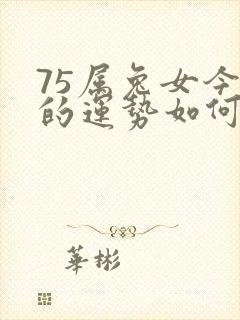 75属兔女今
的运势如何
華彬